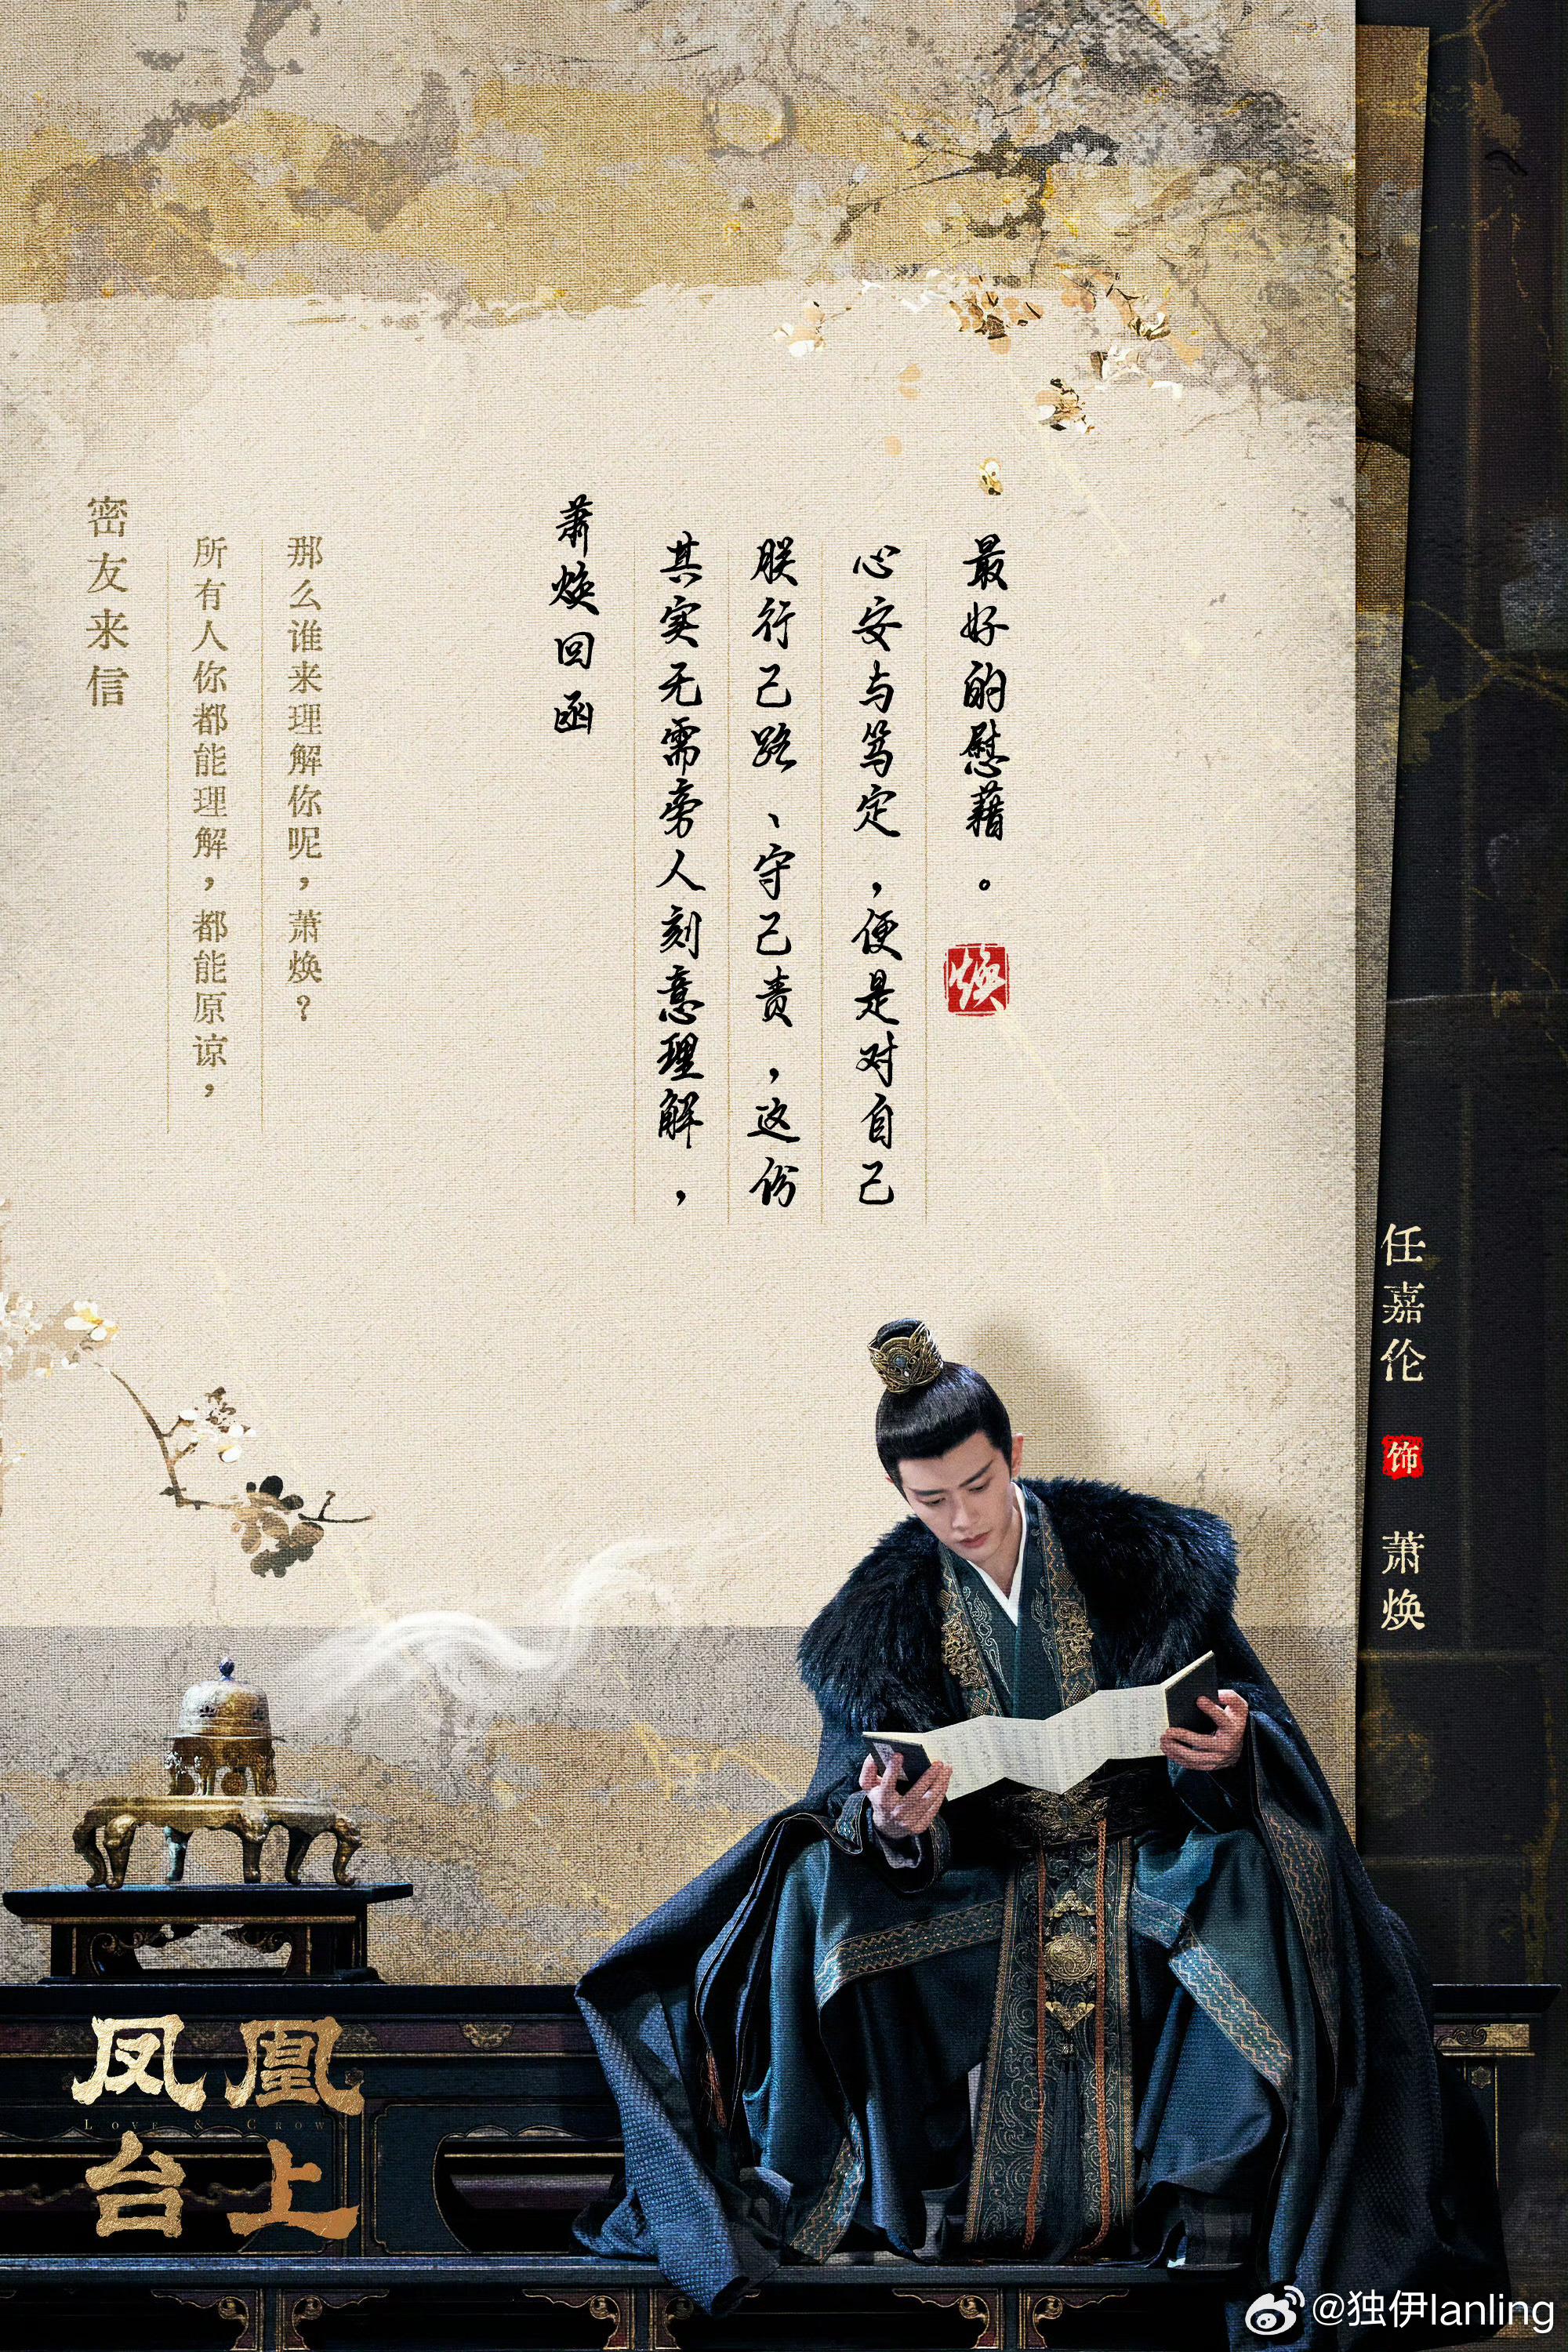 密友来信
所有人你都能理解，都能原谅，
那么谁来理解你呢，萧焕？
萧焕回函
其实无需旁人刻意理解，
朕行己路、守己责，这份
心安与笃定，便是对自己
最好的慰藉。
焕
任嘉伦 饰 萧焕
凤凰
LOVE & CROW
台上
@独伊lanling